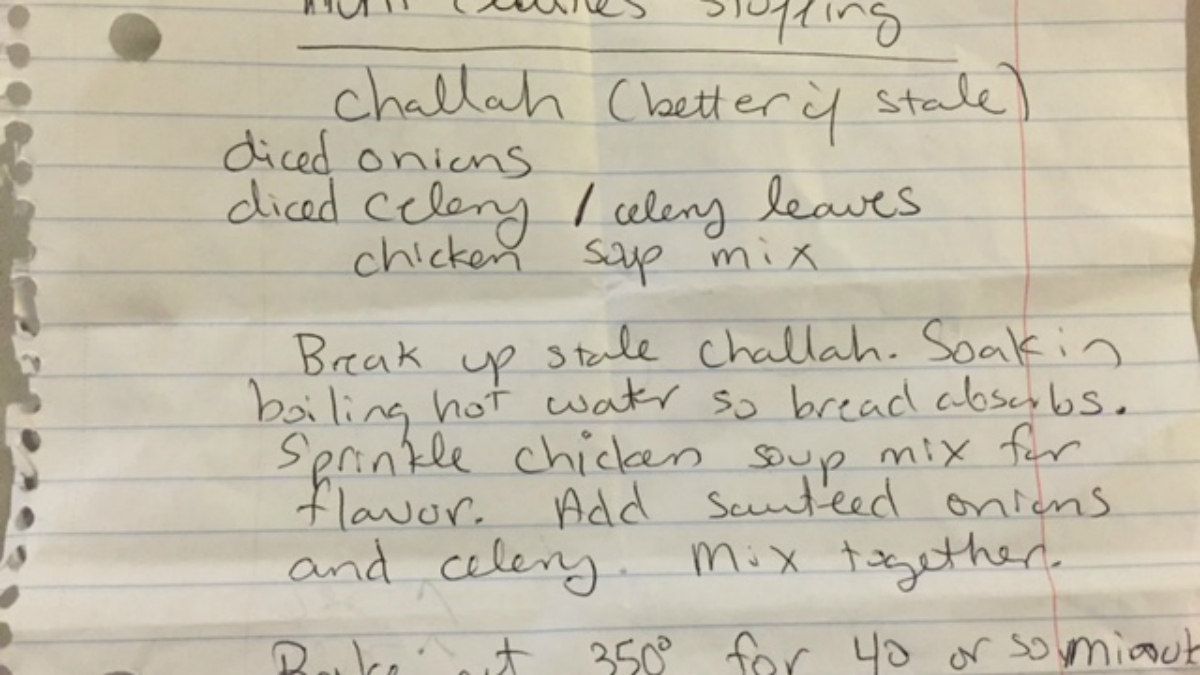 stuffing
challah (better if stale)
diced onions
diced celery / celery leaves
chicken soup mix
Break up stale challah. Soak in
boiling hot water so bread absorbs.
Sprinkle chicken soup mix for
flavor. Add sauteed onions
and celery. Mix together.
Bake at 350° for 40 or so